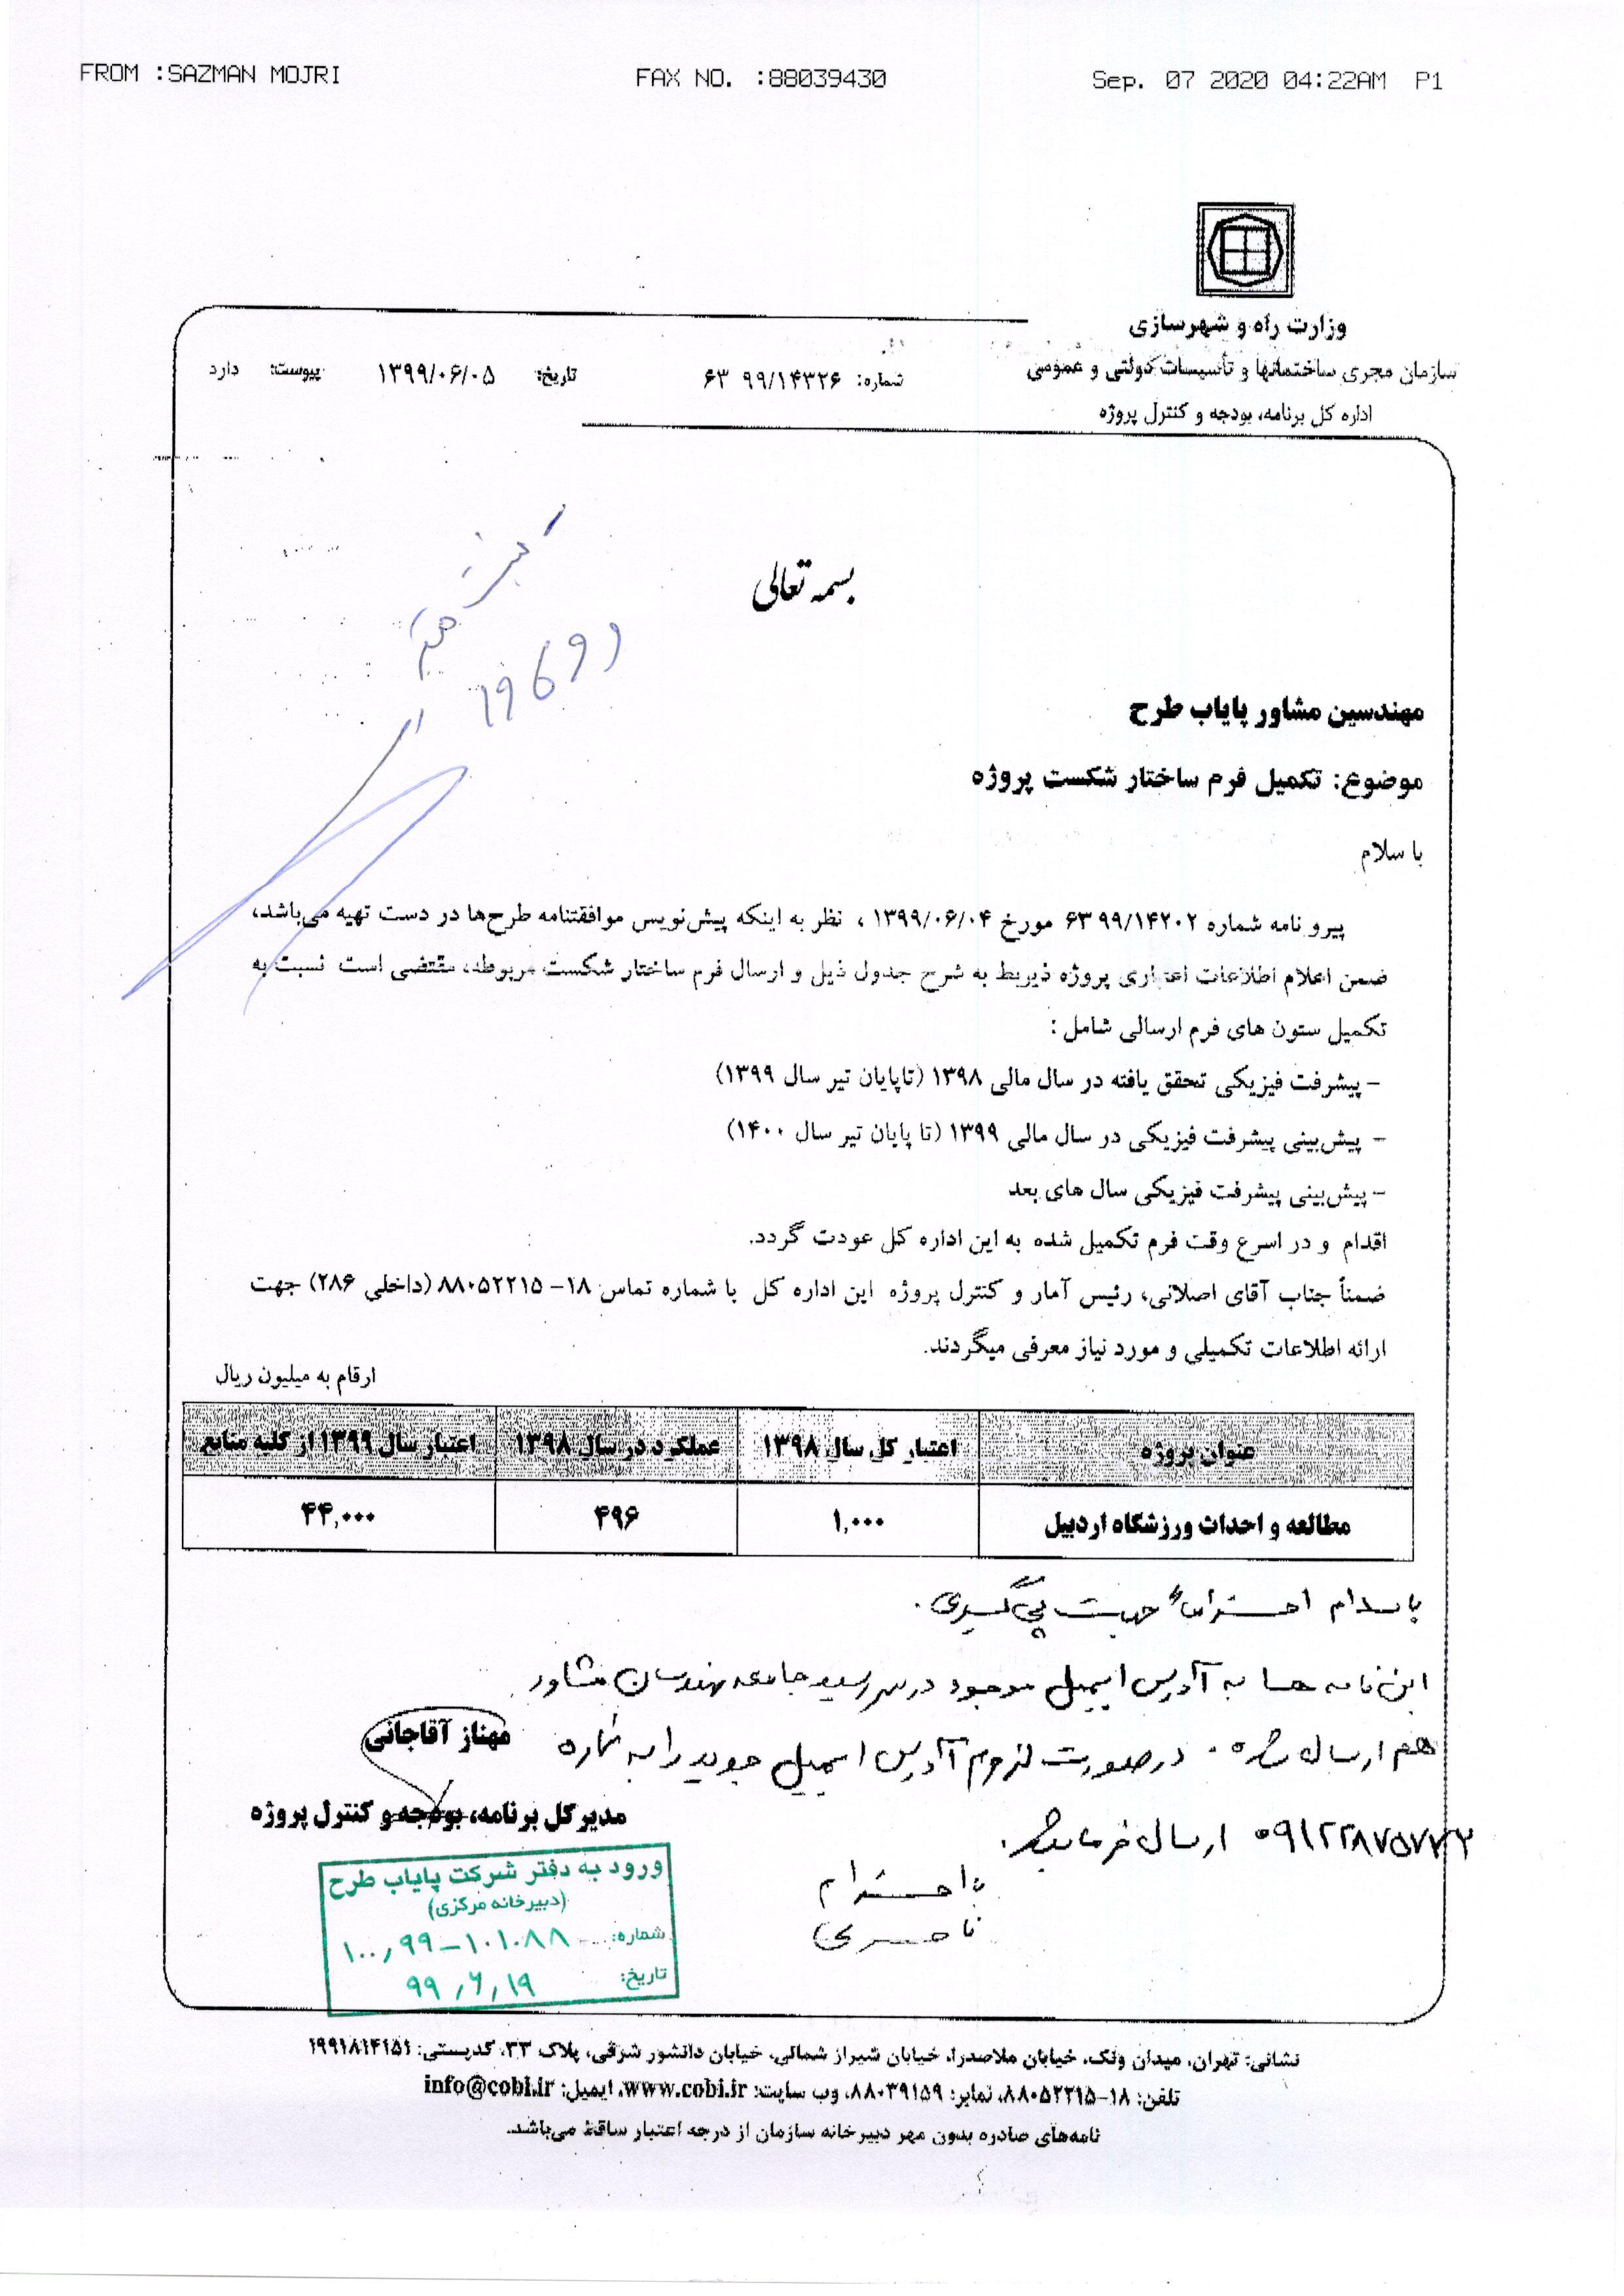 FROM :SAZMAN MOJRI FAX NO. :88039430 Sep. 07 2020 04:22AM P1
وزارت راه و شهرسازی
سازمان مجری ساختمانها و تأسیسات دولتی و عمومی
اداره کل برنامه، بودجه و کنترل پروژه
شماره: ۹۹/۱۴۳۲۶ ۶۳ تاریخ: ۱۳۹۹/۰۶/۰۵ پیوست: دارد
بسمه تعالی
مهندسین مشاور پایاب طرح
موضوع: تکمیل فرم ساختار شکست پروژه
با سلام
پیرو نامه شماره ۹۹/۱۴۲۰۲ ۶۳ مورخ ۱۳۹۹/۰۶/۰۴ ، نظر به اینکه پیش‌نویس موافقتنامه طرح‌ها در دست تهیه می‌باشد،
ضمن اعلام اطلاعات اعتباری پروژه ذیربط به شرح جدول ذیل و ارسال فرم ساختار شکست مربوطه، مقتضی است نسبت به
تکمیل ستون های فرم ارسالی شامل :
- پیشرفت فیزیکی تحقق یافته در سال مالی ۱۳۹۸ (تاپایان تیر سال ۱۳۹۹)
- پیش‌بینی پیشرفت فیزیکی در سال مالی ۱۳۹۹ (تا پایان تیر سال ۱۴۰۰)
- پیش‌بینی پیشرفت فیزیکی سال های بعد
اقدام و در اسرع وقت فرم تکمیل شده به این اداره کل عودت گردد.
ضمناً جناب آقای اصلانی، رئیس آمار و کنترل پروژه این اداره کل با شماره تماس ۱۸-۸۸۰۵۲۲۱۵ (داخلی ۲۸۶) جهت
ارائه اطلاعات تکمیلی و مورد نیاز معرفی میگردند.
ارقام به میلیون ریال
عنوان پروژه اعتبار کل سال ۱۳۹۸ عملکرد در سال ۱۳۹۸ اعتبار سال ۱۳۹۹ از کلیه منابع
مطالعه و احداث ورزشگاه اردبیل ۱,۰۰۰ ۴۹۶ ۴۴,۰۰۰
با سلام احتراماً جهت پیگیری.
این نامه ها به آدرس ایمیل موجود در سررسید جامعه مهندسان مشاور
هم ارسال شده. درصورت لزوم آدرس ایمیل جدید را به شماره
۰۹۱۲۲۸۷۵۷۷۲ ارسال فرمایید.
با احترام
ناصری
مهناز آقاجانی
مدیرکل برنامه، بودجه و کنترل پروژه
ورود به دفتر شرکت پایاب طرح
(دبیرخانه مرکزی)
شماره: ۱۰۰,۹۹-۱۰۱۰۸۸
تاریخ: ۹۹,۶,۱۹
نشانی: تهران، میدان ونک، خیابان ملاصدرا، خیابان شیراز شمالی، خیابان دانشور شرقی، پلاک ۳۳، کدپستی: ۱۹۹۱۸۱۴۱۵۱
تلفن: ۱۸-۸۸۰۵۲۲۱۵، نمابر: ۸۸۰۳۹۱۵۹، وب سایت: www.cobi.ir، ایمیل: info@cobi.ir
نامه‌های صادره بدون مهر دبیرخانه سازمان از درجه اعتبار ساقط می‌باشد.